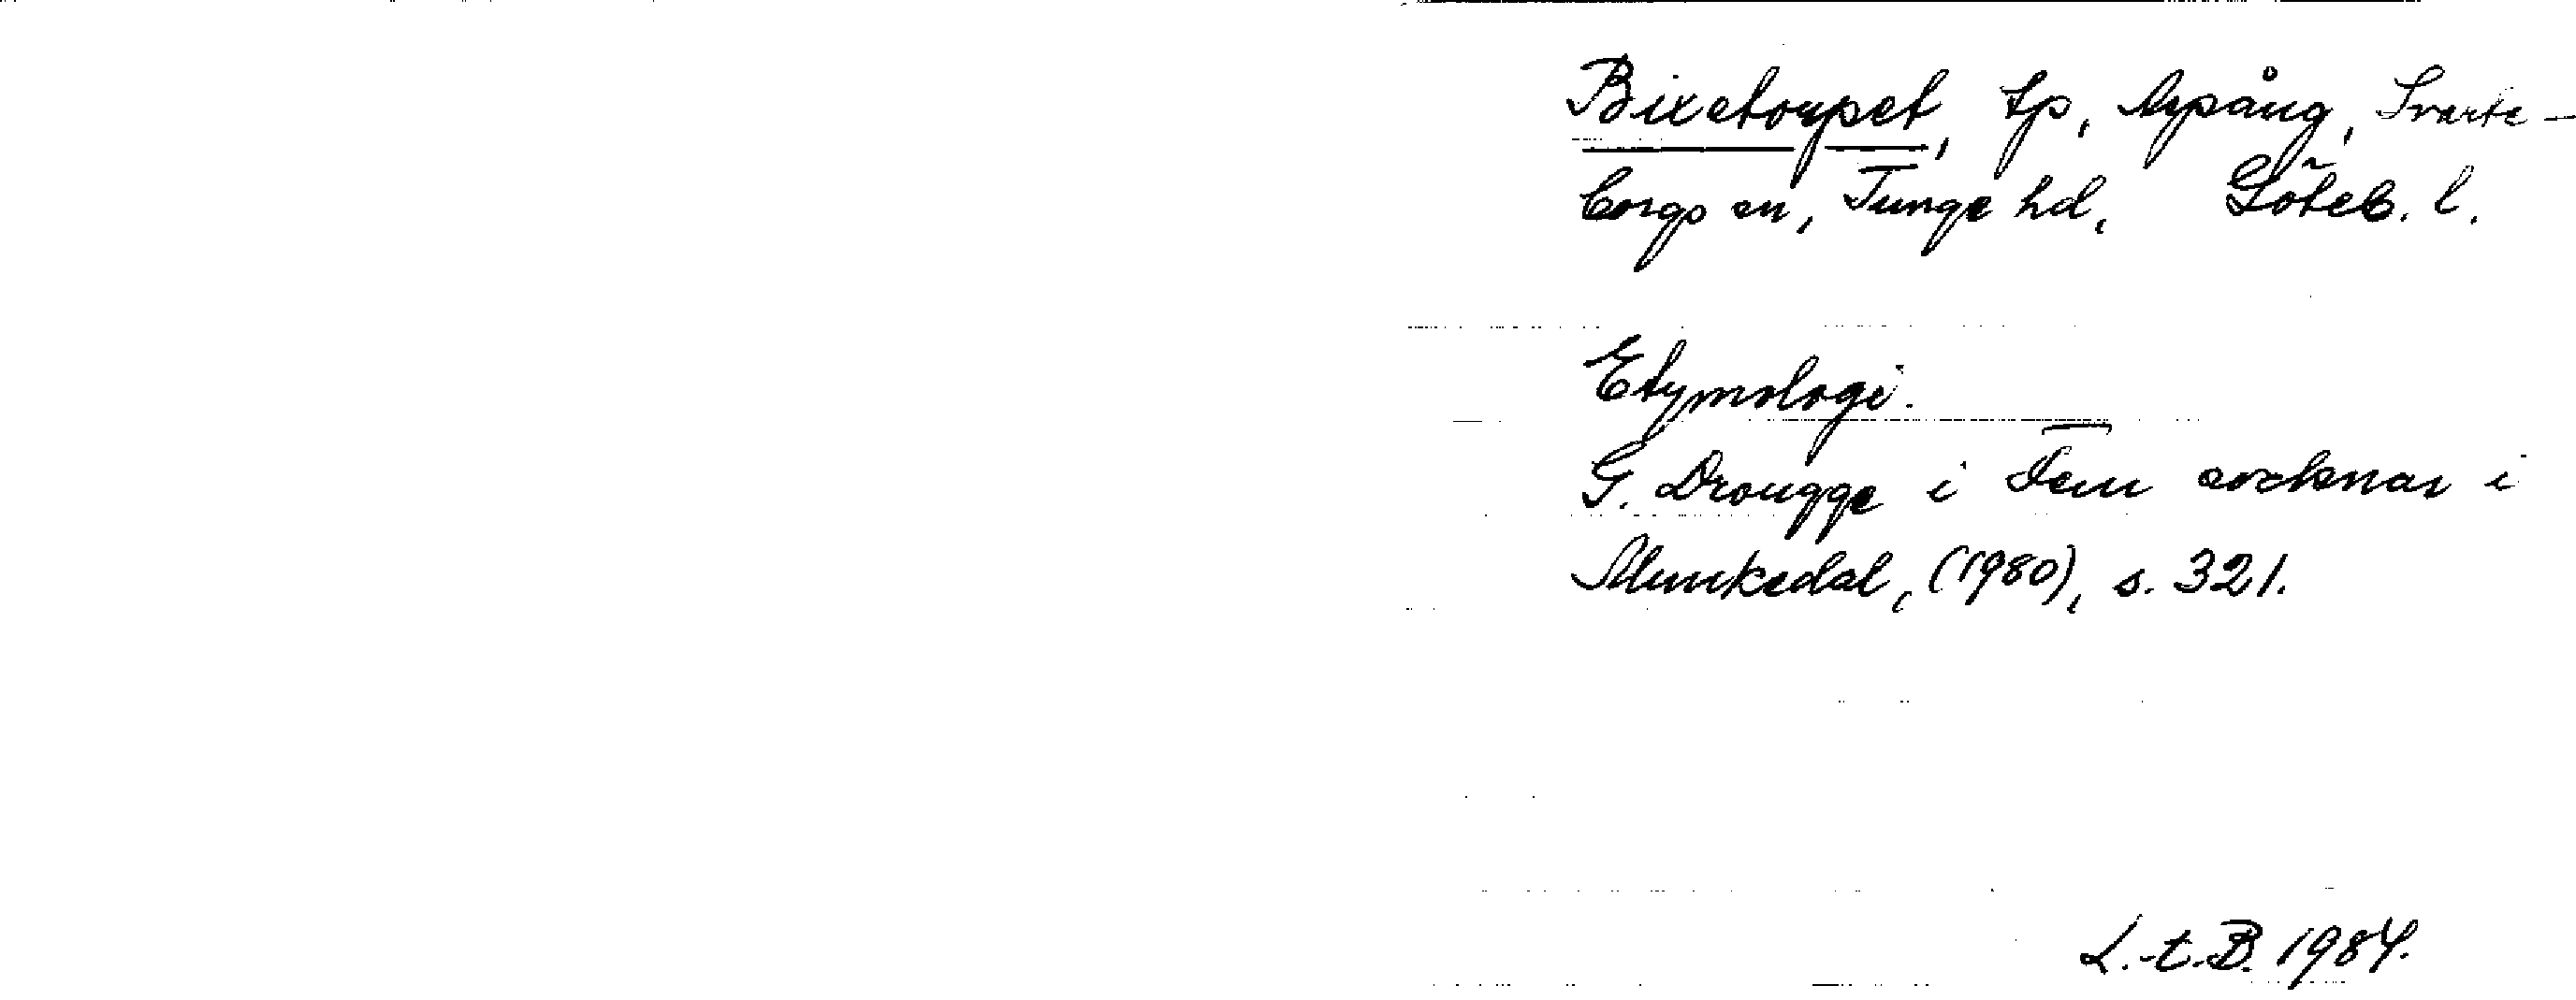 Bixetorpet, tp, Apång, Svarte-
borgs sn, Tunge hd, Göteb. l.
Etymologi.
G. Drougge i Fem socknar i
Munkedal, (1980), s. 321.
L.-t.B. 1984.